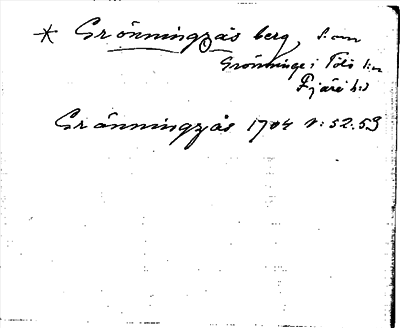 * Grönningzås berg, S. om
Grönninge i Tölö sn
Fjäre hd
Grönningzås 1704 v: 52.53